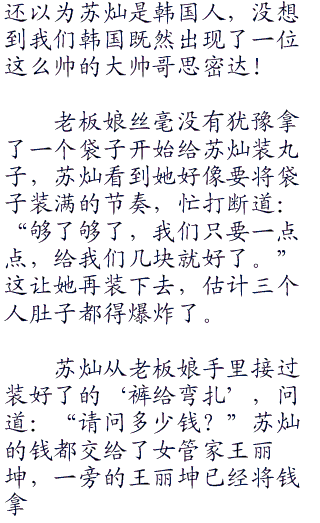 还以为苏灿是韩国人，没想
到我们韩国既然出现了一位
这么帅的大帅哥思密达！
老板娘丝毫没有犹豫拿
了一个袋子开始给苏灿装丸
子，苏灿看到她好像要将袋
子装满的节奏，忙打断道：
“够了够了，我们只要一点
点，给我们几块就好了。”
这让她再装下去，估计三个
人肚子都得爆炸了。
苏灿从老板娘手里接过
装好了的‘裤给弯扎’，问
道：“请问多少钱？”苏灿
的钱都交给了女管家王丽
坤，一旁的王丽坤已经将钱
拿